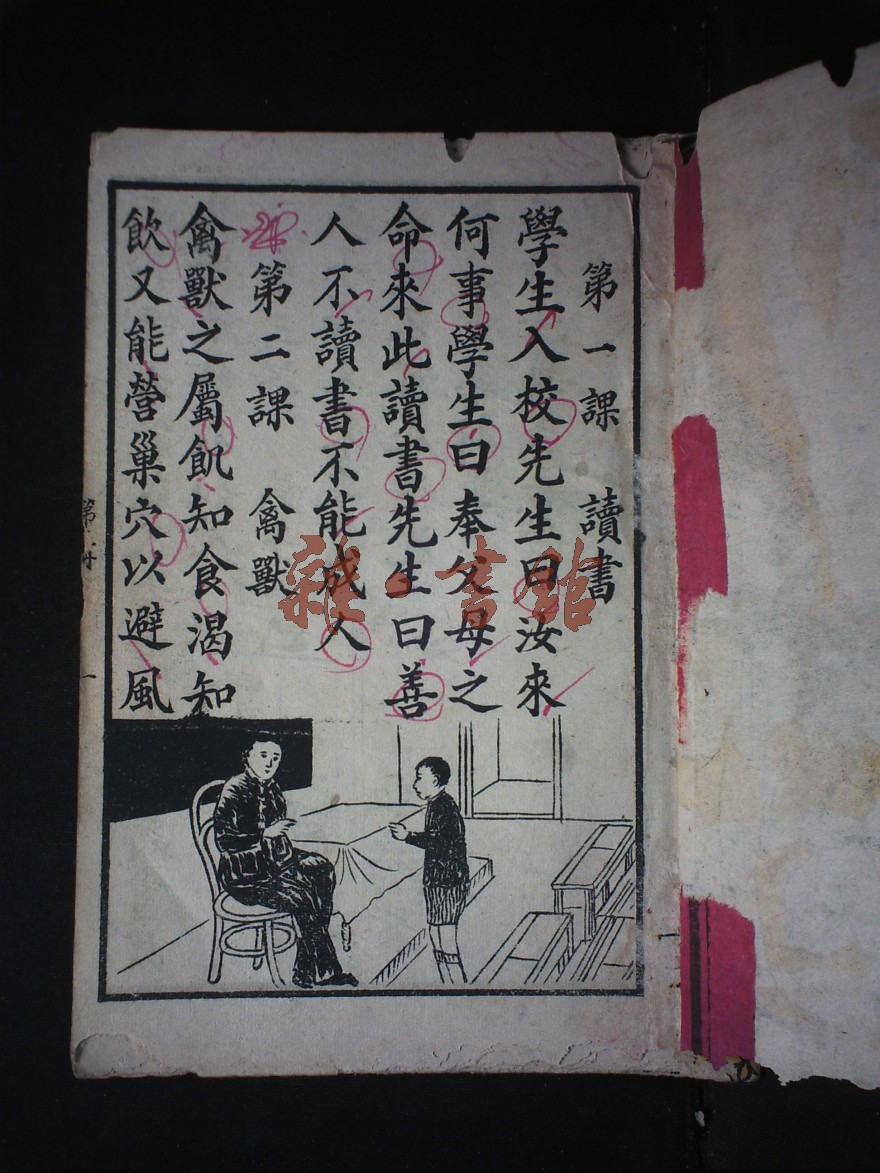 第一課　讀書
學生入校先生曰汝來
何事學生曰奉父母之
命來此讀書先生曰善
人不讀書不能成人
第二課　禽獸
禽獸之屬飢知食渴知
飲又能營巢穴以避風
一
雜·書館